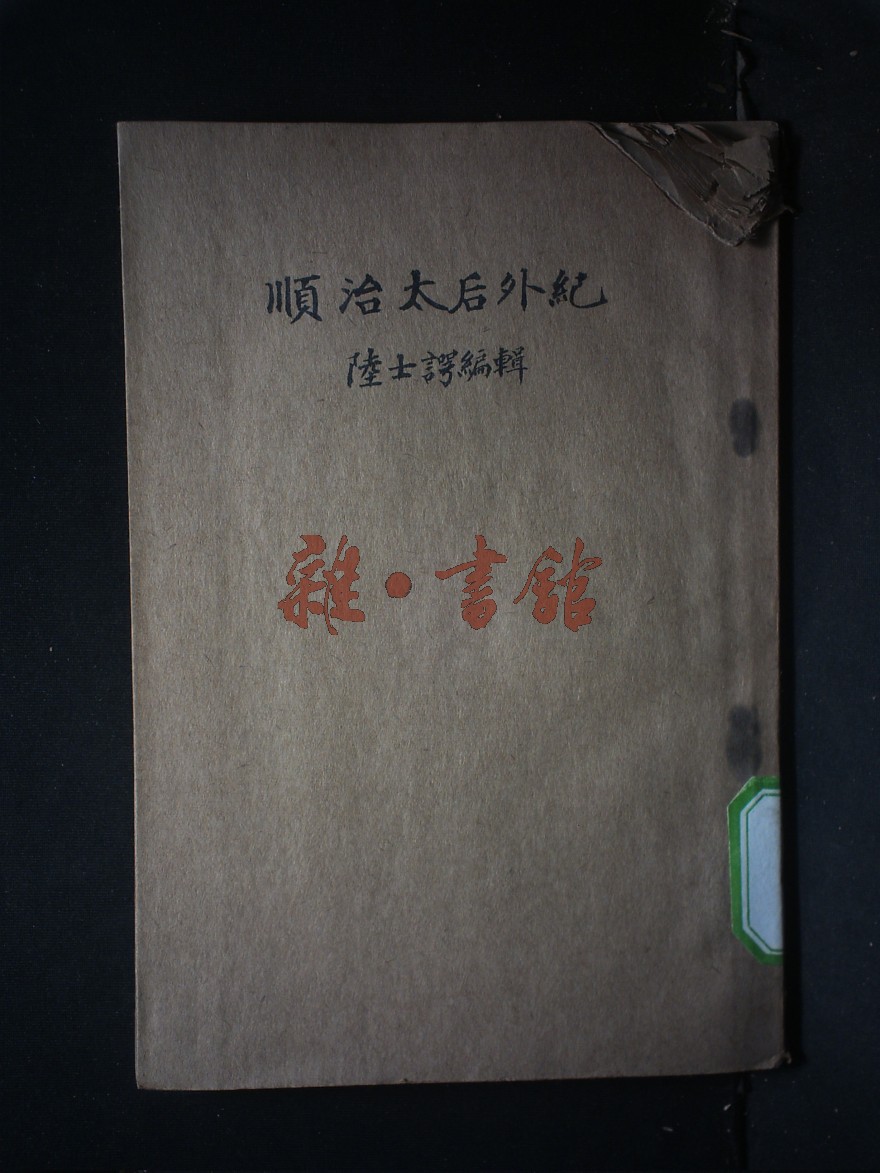 順治太后外紀
陸士諤編輯
雜·書館